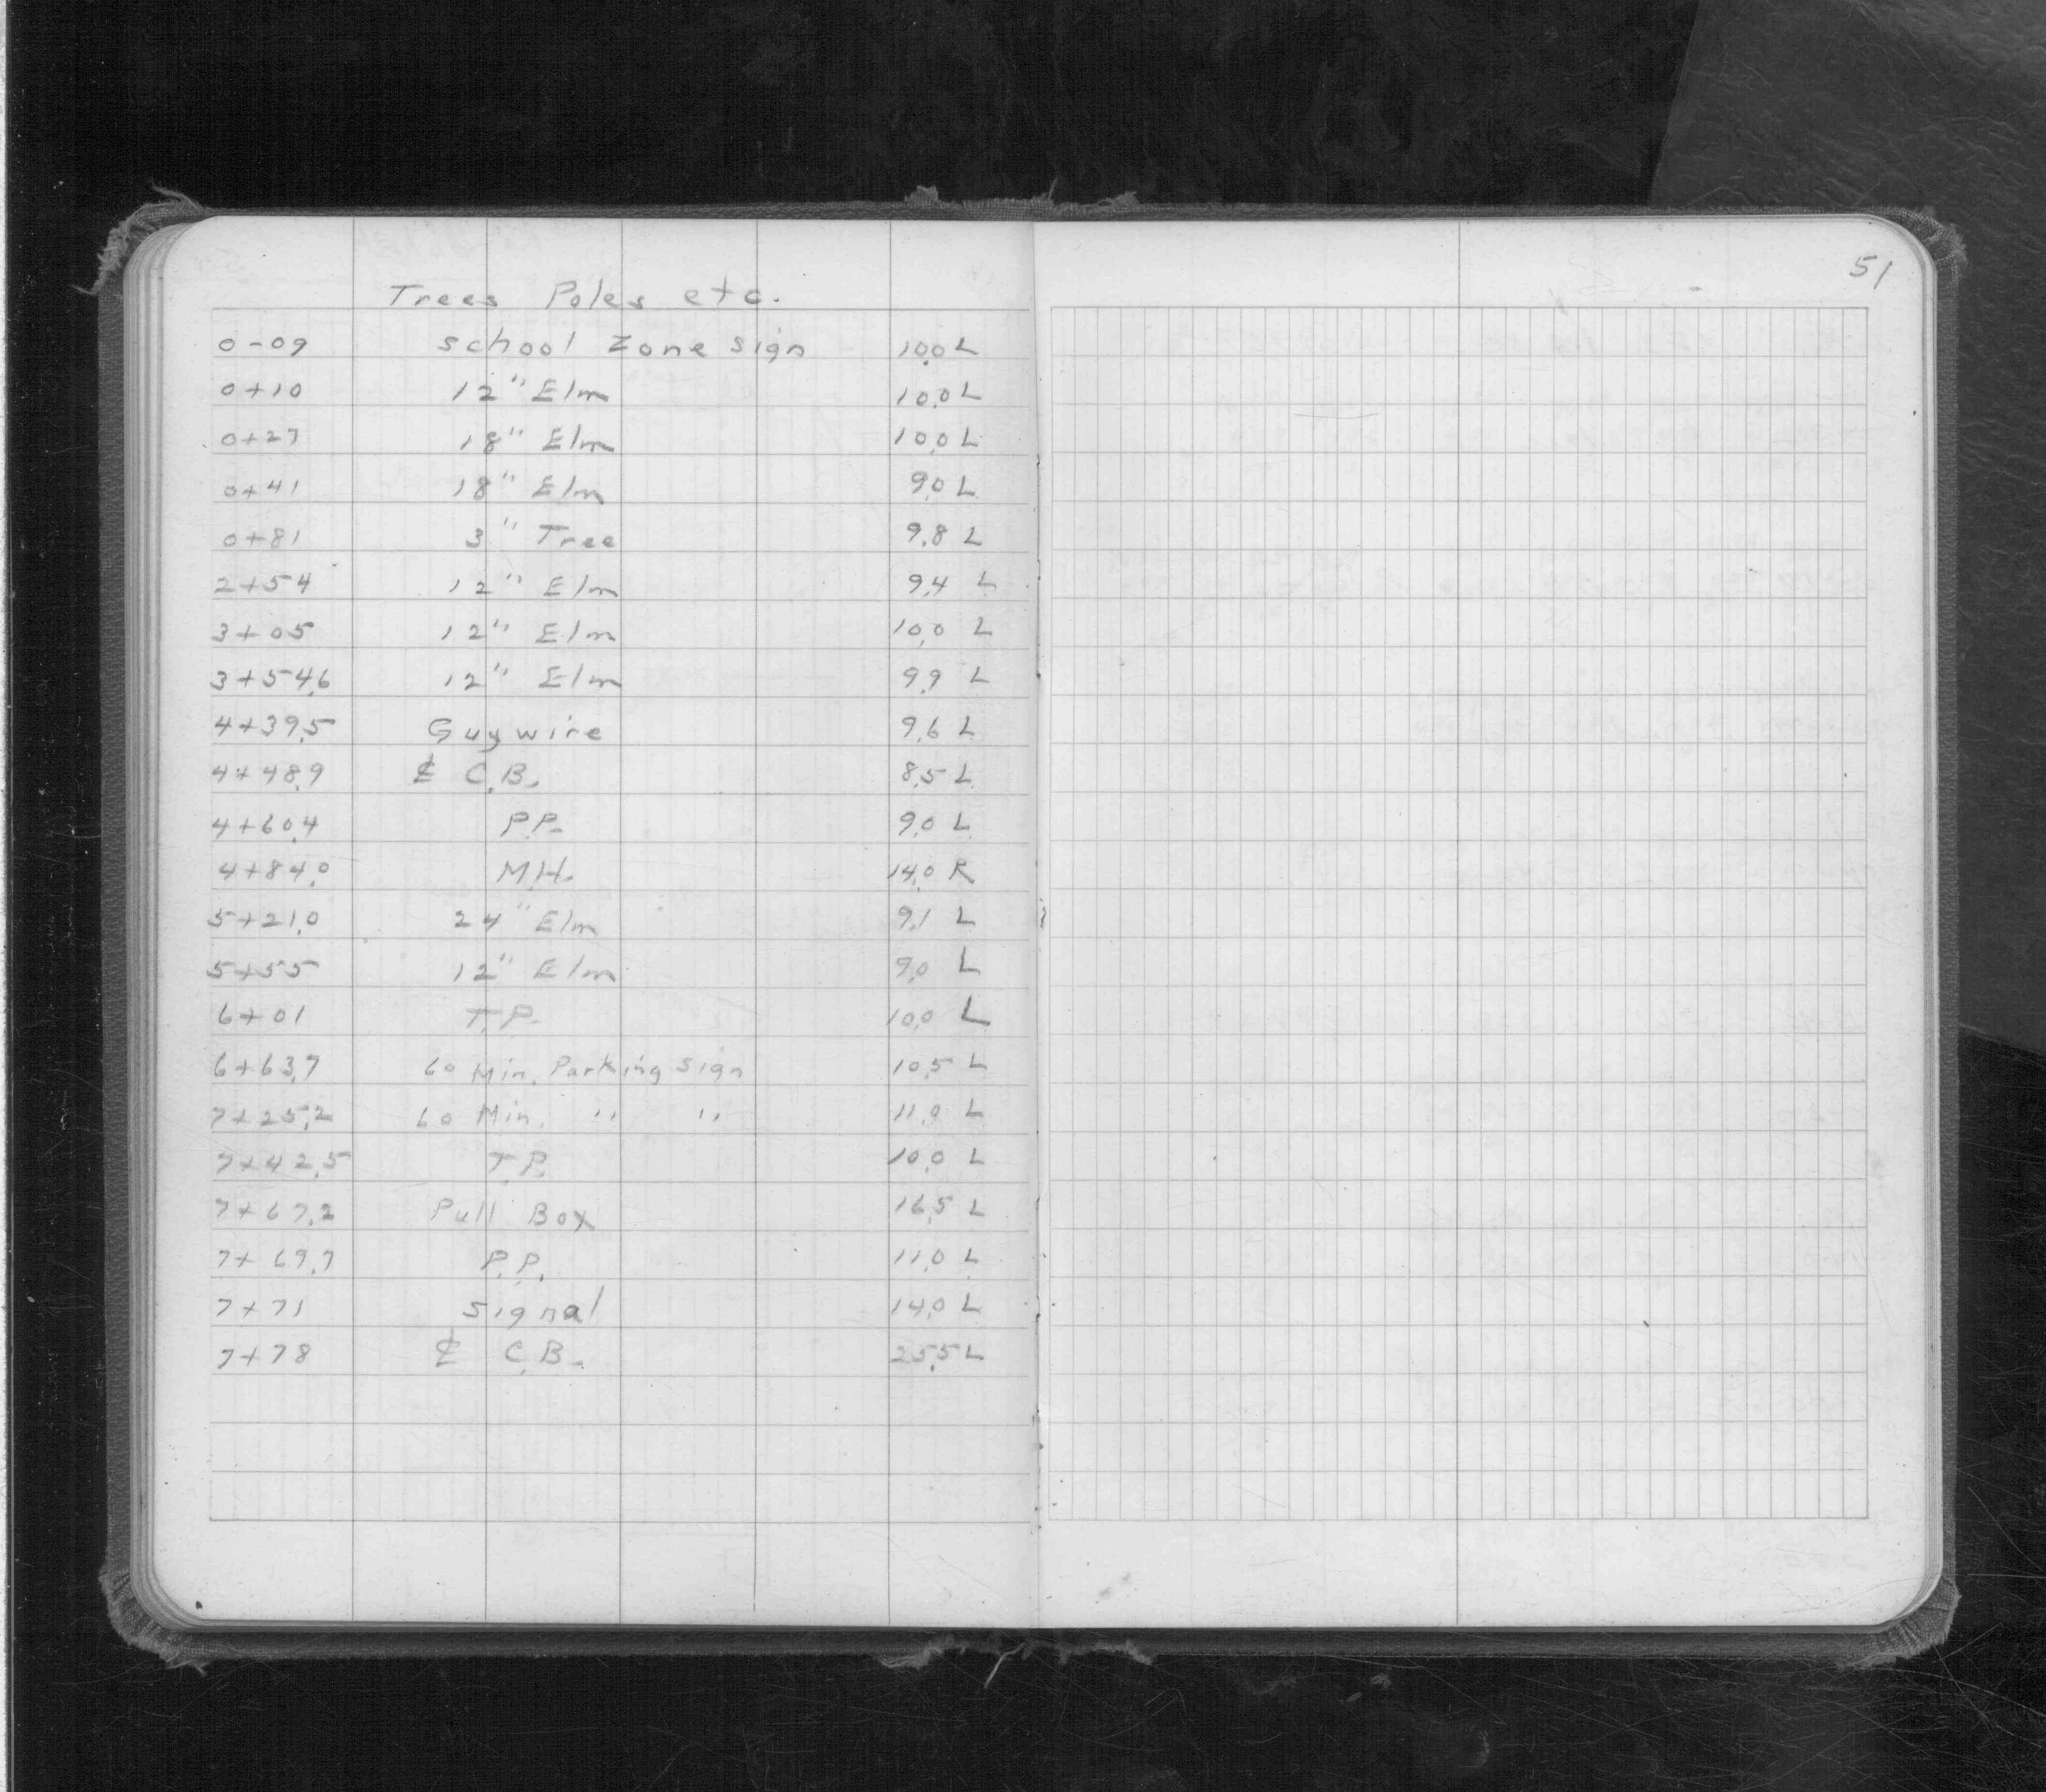 51
Trees Poles etc.
0-09 School Zone Sign 10.0 L
0+10 12" Elm 10.0 L
0+27 18" Elm 10.0 L
0+41 18" Elm 9.0 L
0+81 3" Tree 9.8 L
2+54 12" Elm 9.4 L
3+05 12" Elm 10.0 L
3+54.6 12" Elm 9.9 L
4+39.5 Guy wire 9.6 L
4+48.9 ℄ C.B. 8.5 L
4+60.4 P.P. 9.0 L
4+84.0 M.H. 14.0 R
5+21.0 24" Elm 9.1 L
5+55 12" Elm 9.0 L
6+01 T.P. 10.0 L
6+63.7 60 Min. Parking Sign 10.5 L
7+25.2 60 Min. " " 11.0 L
7+42.5 T.P. 10.0 L
7+67.2 Pull Box 16.5 L
7+69.7 P.P. 11.0 L
7+71 Signal 14.0 L
7+78 ℄ C.B. 25.5 L